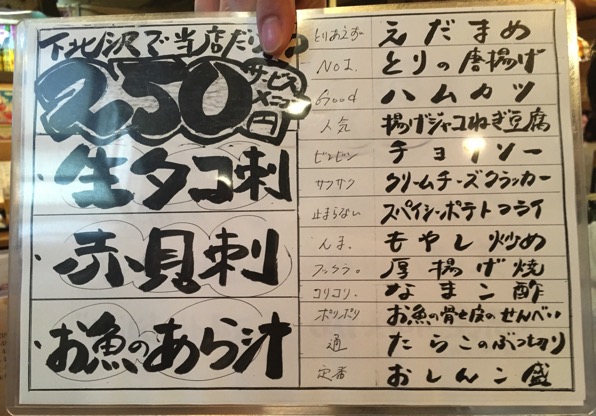 下北沢で当店だけの
250円
サービスメニュー
生タコ刺
赤貝刺
お魚のあら汁
とりあえず えだまめ
NO1. とりの唐揚げ
Good ハムカツ
人気 揚げジャコねぎ豆腐
ビンビン チョイソー
サクサク クリームチーズクラッカー
止まらない スパイシーポテトフライ
んま。 もやし炒め
フックラ。 厚揚げ焼
コリコリ。 なまこ酢
ポリポリ お魚の骨と皮のせんべい
通 たらこのぶつ切り
定番 おしんこ盛